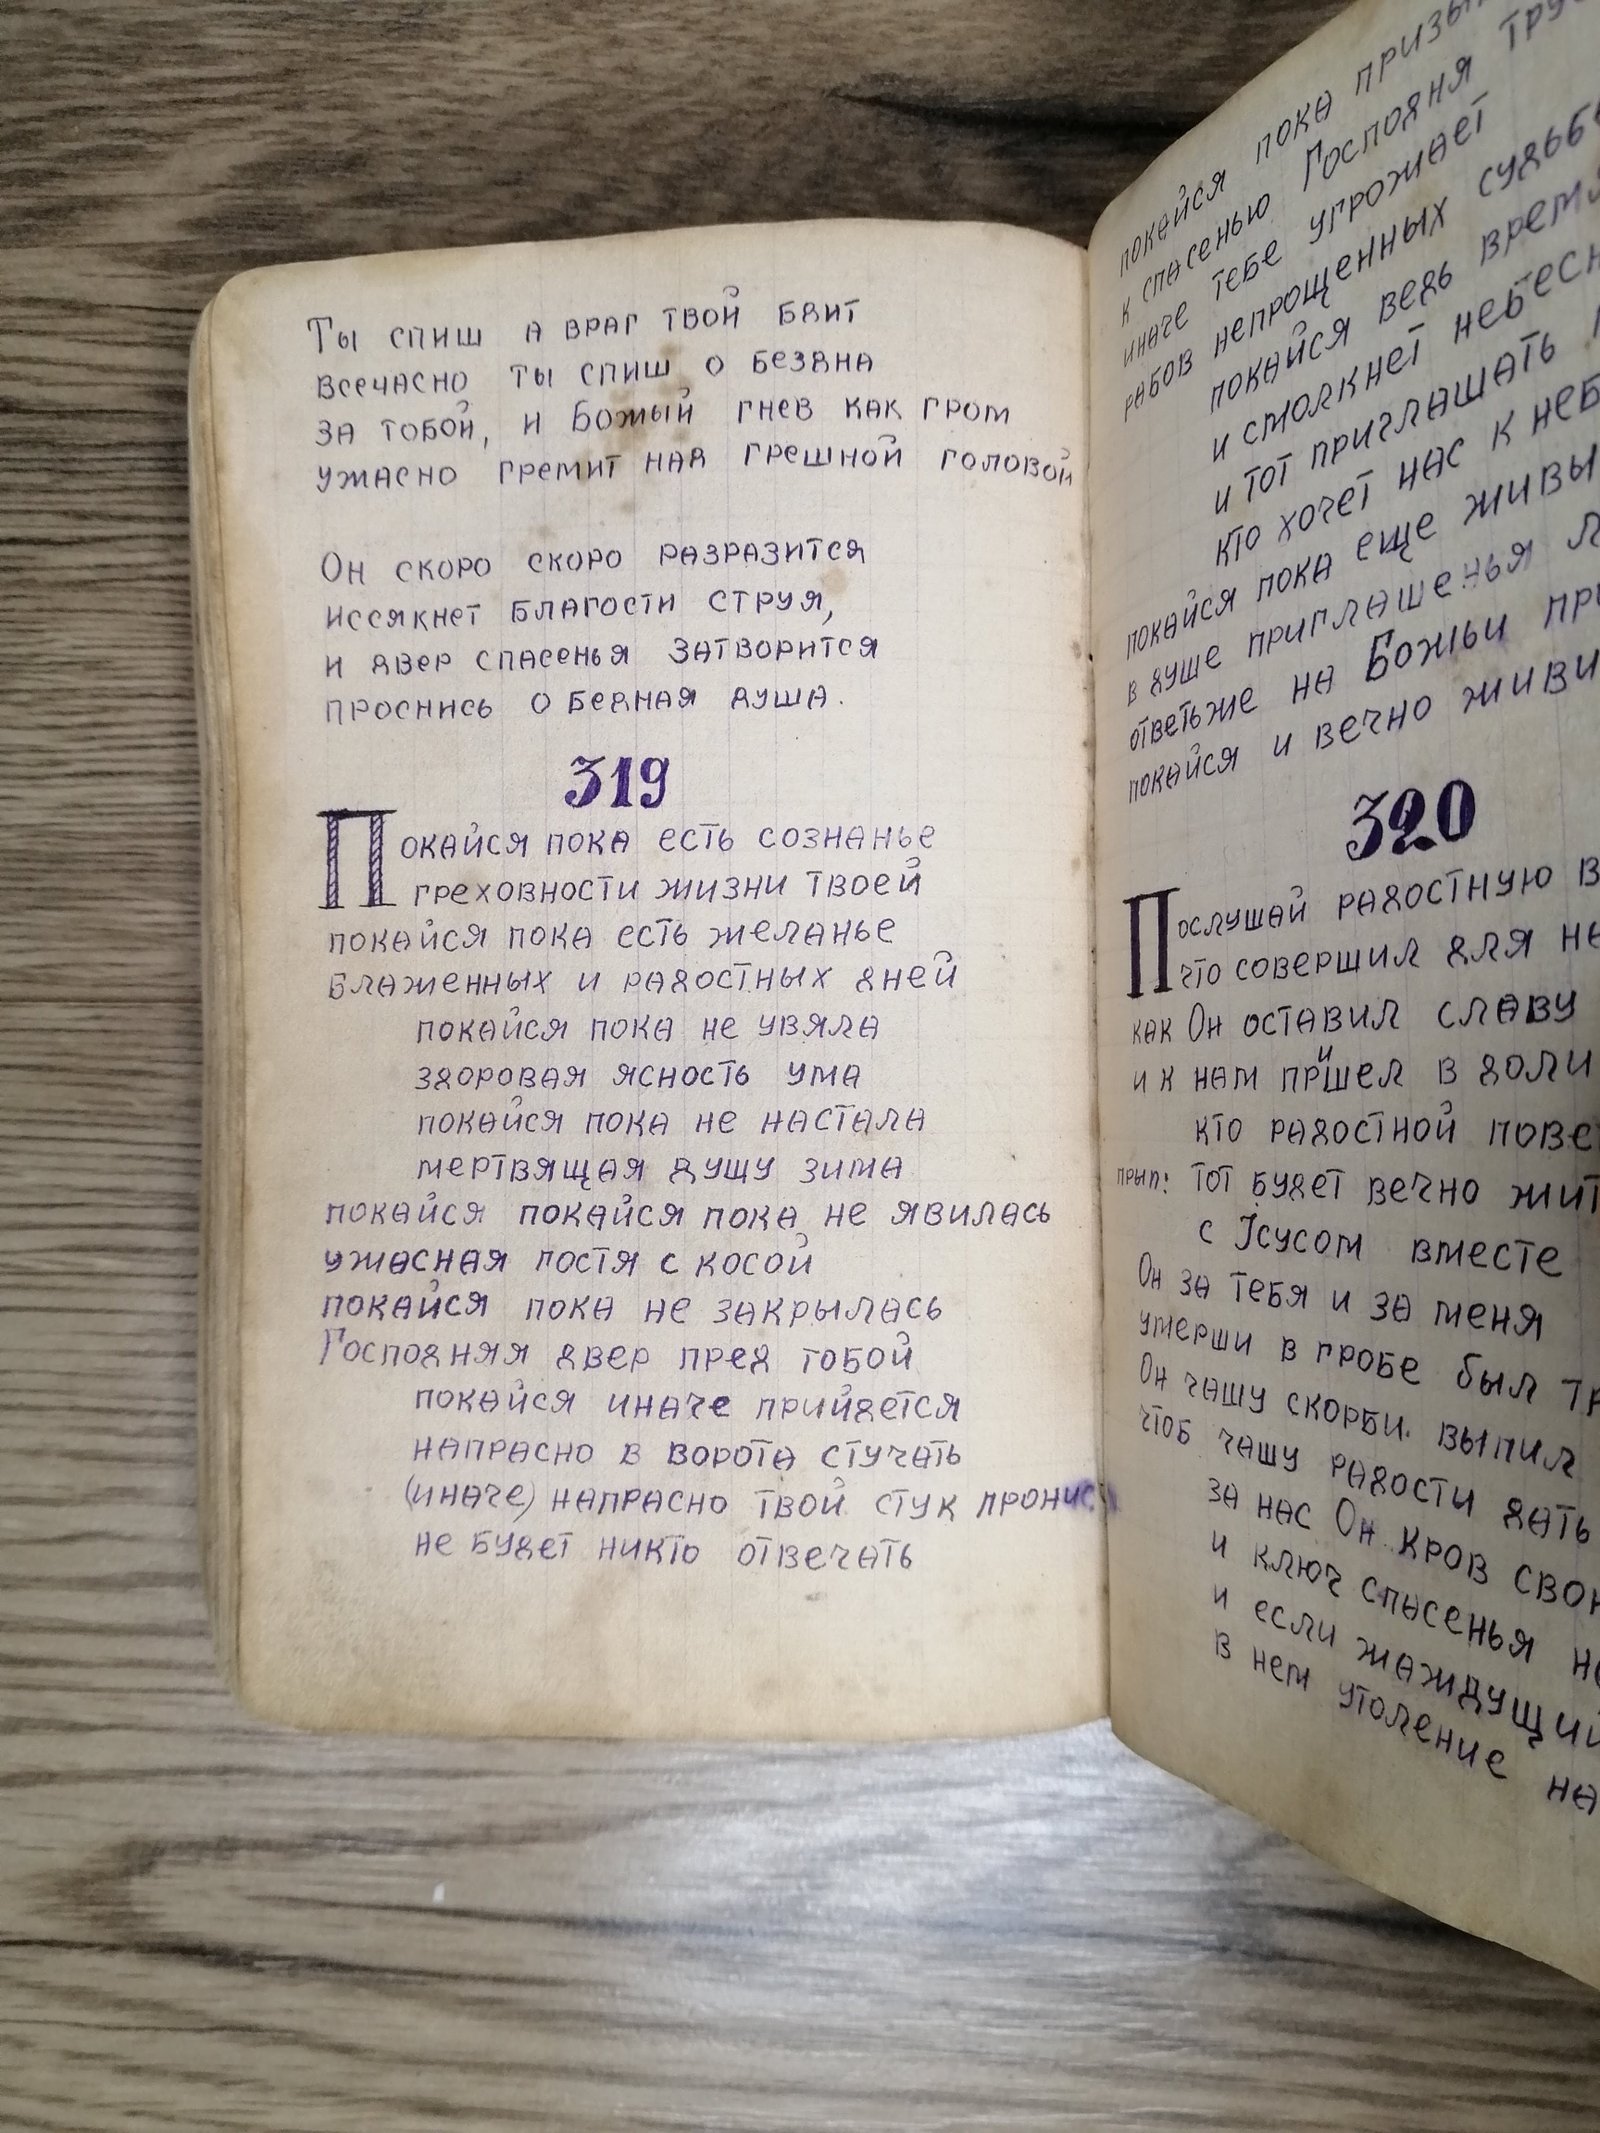 Ты спиш а враг твой бдит
всечасно ты спиш о бездна
за тобой, и Божый гнев как гром
ужасно гремит над грешной головой
Он скоро скоро разразится
иссякнет благости струя,
и двер спасенья затворится
проснись о бедная душа.
319
Покайся пока есть сознанье
греховности жизни твоей
покайся пока есть желанье
блаженных и радостных дней
покайся пока не увяла
здоровая ясность ума
покайся пока не настала
мертвящая душу зима
покайся покайся пока не явилась
ужасная гостя с косой
покайся пока не закрылась
Господняя двер пред тобой
покайся иначе прийдется
напрасно в ворота стучать
(иначе) напрасно твой стук
не будет никто отвечать
покайся пока
к спасенью Господня
иначе тебе угрожает
рабов непрощенных
покайся ведь время
и смолкнет
и тот приглашать
кто хочет нас к
покайся пока еще
в душе приглашенья
ответьже на Божьи
покайся и вечно живи
320
Послушай радостную
что совершил для
как Он оставил славу
и к нам пришел в
кто радостной
прып: тот будет вечно
с Iсусом вместе
Он за тебя и за меня
умерши в гробе был
Он чашу скорби выпил
чтоб чашу радости дать
за нас Он кров
и ключ спасенья
и если жаждущий
в нем утоление